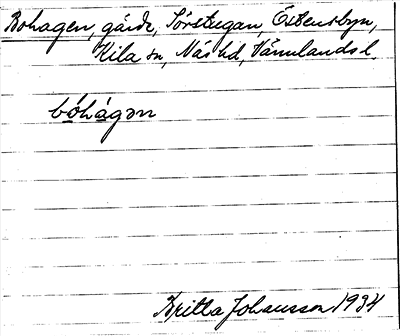 Bohagen, gärde, Sörstugan, Östensbyn,
Kila sn, Näs hd, Värmlands l.
bóhágən
Britta Johansson 1934